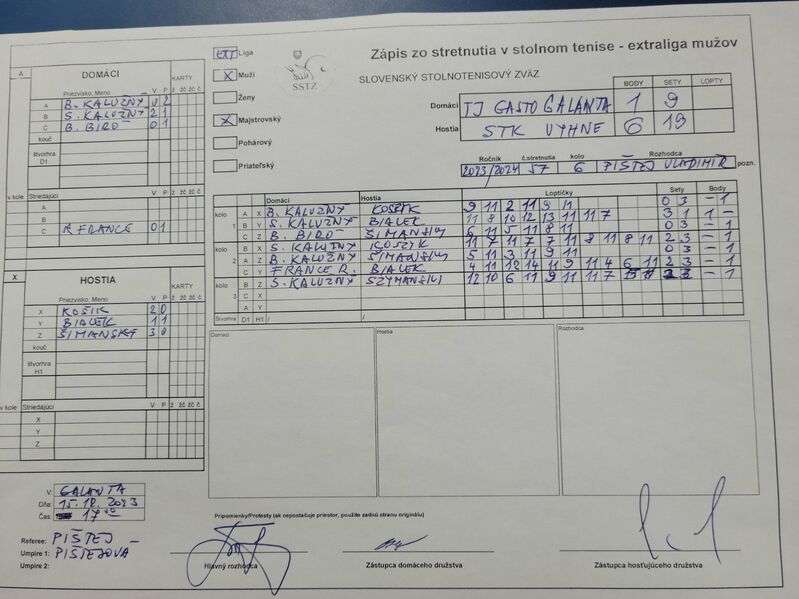 Zápis zo stretnutia v stolnom tenise - extraliga mužov
SLOVENSKÝ STOLNOTENISOVÝ ZVÄZ
SSTZ
EXT Liga
X Muži
Ženy
X Majstrovský
Pohárový
Priateľský
BODY SETY LOPTY
Domáci TJ GASTO GALANTA 1 9
Hostia STK VYHNE 6 19
Ročník č.stretnutia kolo Rozhodca
2023/2024 57 6 PIŠTEJ VLADIMÍR pozn.
A DOMÁCI KARTY
Priezvisko, Meno V P ž žč žč č
A B. KALUŽNÝ 0 2
B S. KALUŽNÝ 2 1
C B. BIRÓ 0 1
kouč
štvorhra
D1
v kole Striedajúci
A
B
C R FRANCE 0 1
X HOSTIA KARTY
Priezvisko, Meno V P ž žč žč č
X KOŠIK 2 0
Y BIALEK 1 1
Z ŠIMANSKÝ 3 0
kouč
štvorhra
H1
v kole Striedajúci V P ž žč žč č
X
Y
Z
Domáci Hostia Loptičky Sety Body
kolo A X B. KALUŽNÝ KOŠIK 9 11 2 11 9 11 0 3 - 1
1 B Y S. KALUŽNÝ BIALEK 11 8 10 12 13 11 11 7 3 1 1 -
C Z B. BIRÓ 6 11 5 11 8 11 0 3 - 1
kolo B X S. KALUŽNÝ KOSZYK 11 7 11 7 7 11 8 11 8 11 2 3 - 1
2 A Z B. KALUŽNÝ 5 11 3 11 9 11 0 3 - 1
C Y FRANCE R. BIALEK 4 11 12 14 11 9 11 4 6 11 2 3 - 1
kolo B Z S. KALUŽNÝ 12 10 6 11 9 11 11 7 - 1
3 C X
A Y
Štvorhra D1 H1 / /
Domáci Hostia Rozhodca
V: GALANTA
Dňa: 15.12.2023
Čas: 17 00
Pripomienky/Protesty (ak nepostačuje priestor, použite zadnú stranu originálu)
Referee: PIŠTEJ
Umpire 1: PIŠTEJOVÁ
Umpire 2:
Hlavný rozhodca Zástupca domáceho družstva Zástupca hosťujúceho družstva